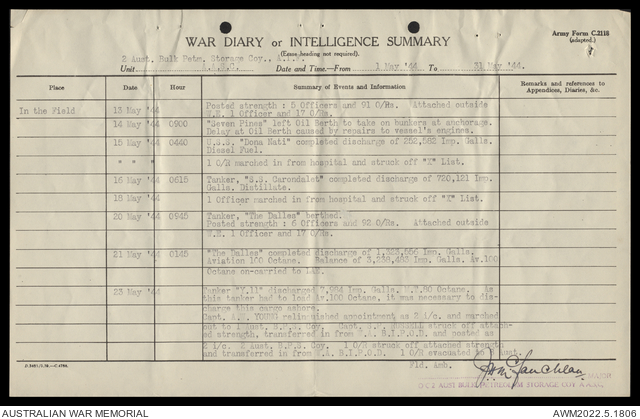 WAR DIARY or INTELLIGENCE SUMMARY
(Erase heading not required).
Army Form C.2118
(adapted.)
2 Aust. Bulk Petm. Storage Coy., A.I.F.
Unit A.A.S.C. Date and Time—From 1 May '44 To 31 May '44.
Place Date Hour Summary of Events and Information Remarks and references to Appendices, Diaries, &c.
In the Field 13 May '44 Posted strength : 5 Officers and 91 O/Rs. Attached outside
W.E. 1 Officer and 17 O/Rs.
14 May '44 0900 "Seven Pines" left Oil Berth to take on bunkers at anchorage.
Delay at Oil Berth caused by repairs to vessel's engines.
15 May '44 0440 U.S.S. "Dona Nati" completed discharge of 252,582 Imp. Galls.
Diesel Fuel.
" " " 1 O/R marched in from hospital and struck off "X" List.
16 May '44 0615 Tanker, "S.S. Carondalet" completed discharge of 720,121 Imp.
Galls. Distillate.
18 May '44 1 Officer marched in from hospital and struck off "X" List.
20 May '44 0945 Tanker, "The Dalles" berthed.
Posted strength : 6 Officers and 92 O/Rs. Attached outside
W.E. 1 Officer and 17 O/Rs.
21 May '44 0145 "The Dalles" completed discharge of 1,323,556 Imp. Galls.
Aviation 100 Octane. Balance of 3,238,483 Imp. Galls. Av.100
Octane on-carried to LAE.
23 May '44 Tanker "Y.11" discharged 7,994 Imp. Galls. M.T.80 Octane. As
this tanker had to load Av.100 Octane, it was necessary to dis-
charge this cargo ashore.
Capt. A.F. YOUNG relinquished appointment as 2 i/c. and marched
out to 1 Aust. B.P.S. Coy. Capt. struck off attach-
ed strength, transferred in from B.I.P.O.D. and posted as
2 i/c. 2 Aust. B.P.S. Coy. 1 O/R struck off attached strength
and transferred in from B.I.P.O.D. 1 O/R evacuated to Aust.
Fld. Amb.
MAJOR
O C 2 AUST BULK PETROLEUM STORAGE COY A.A.S.C.
AUSTRALIAN WAR MEMORIAL AWM2022.5.1806